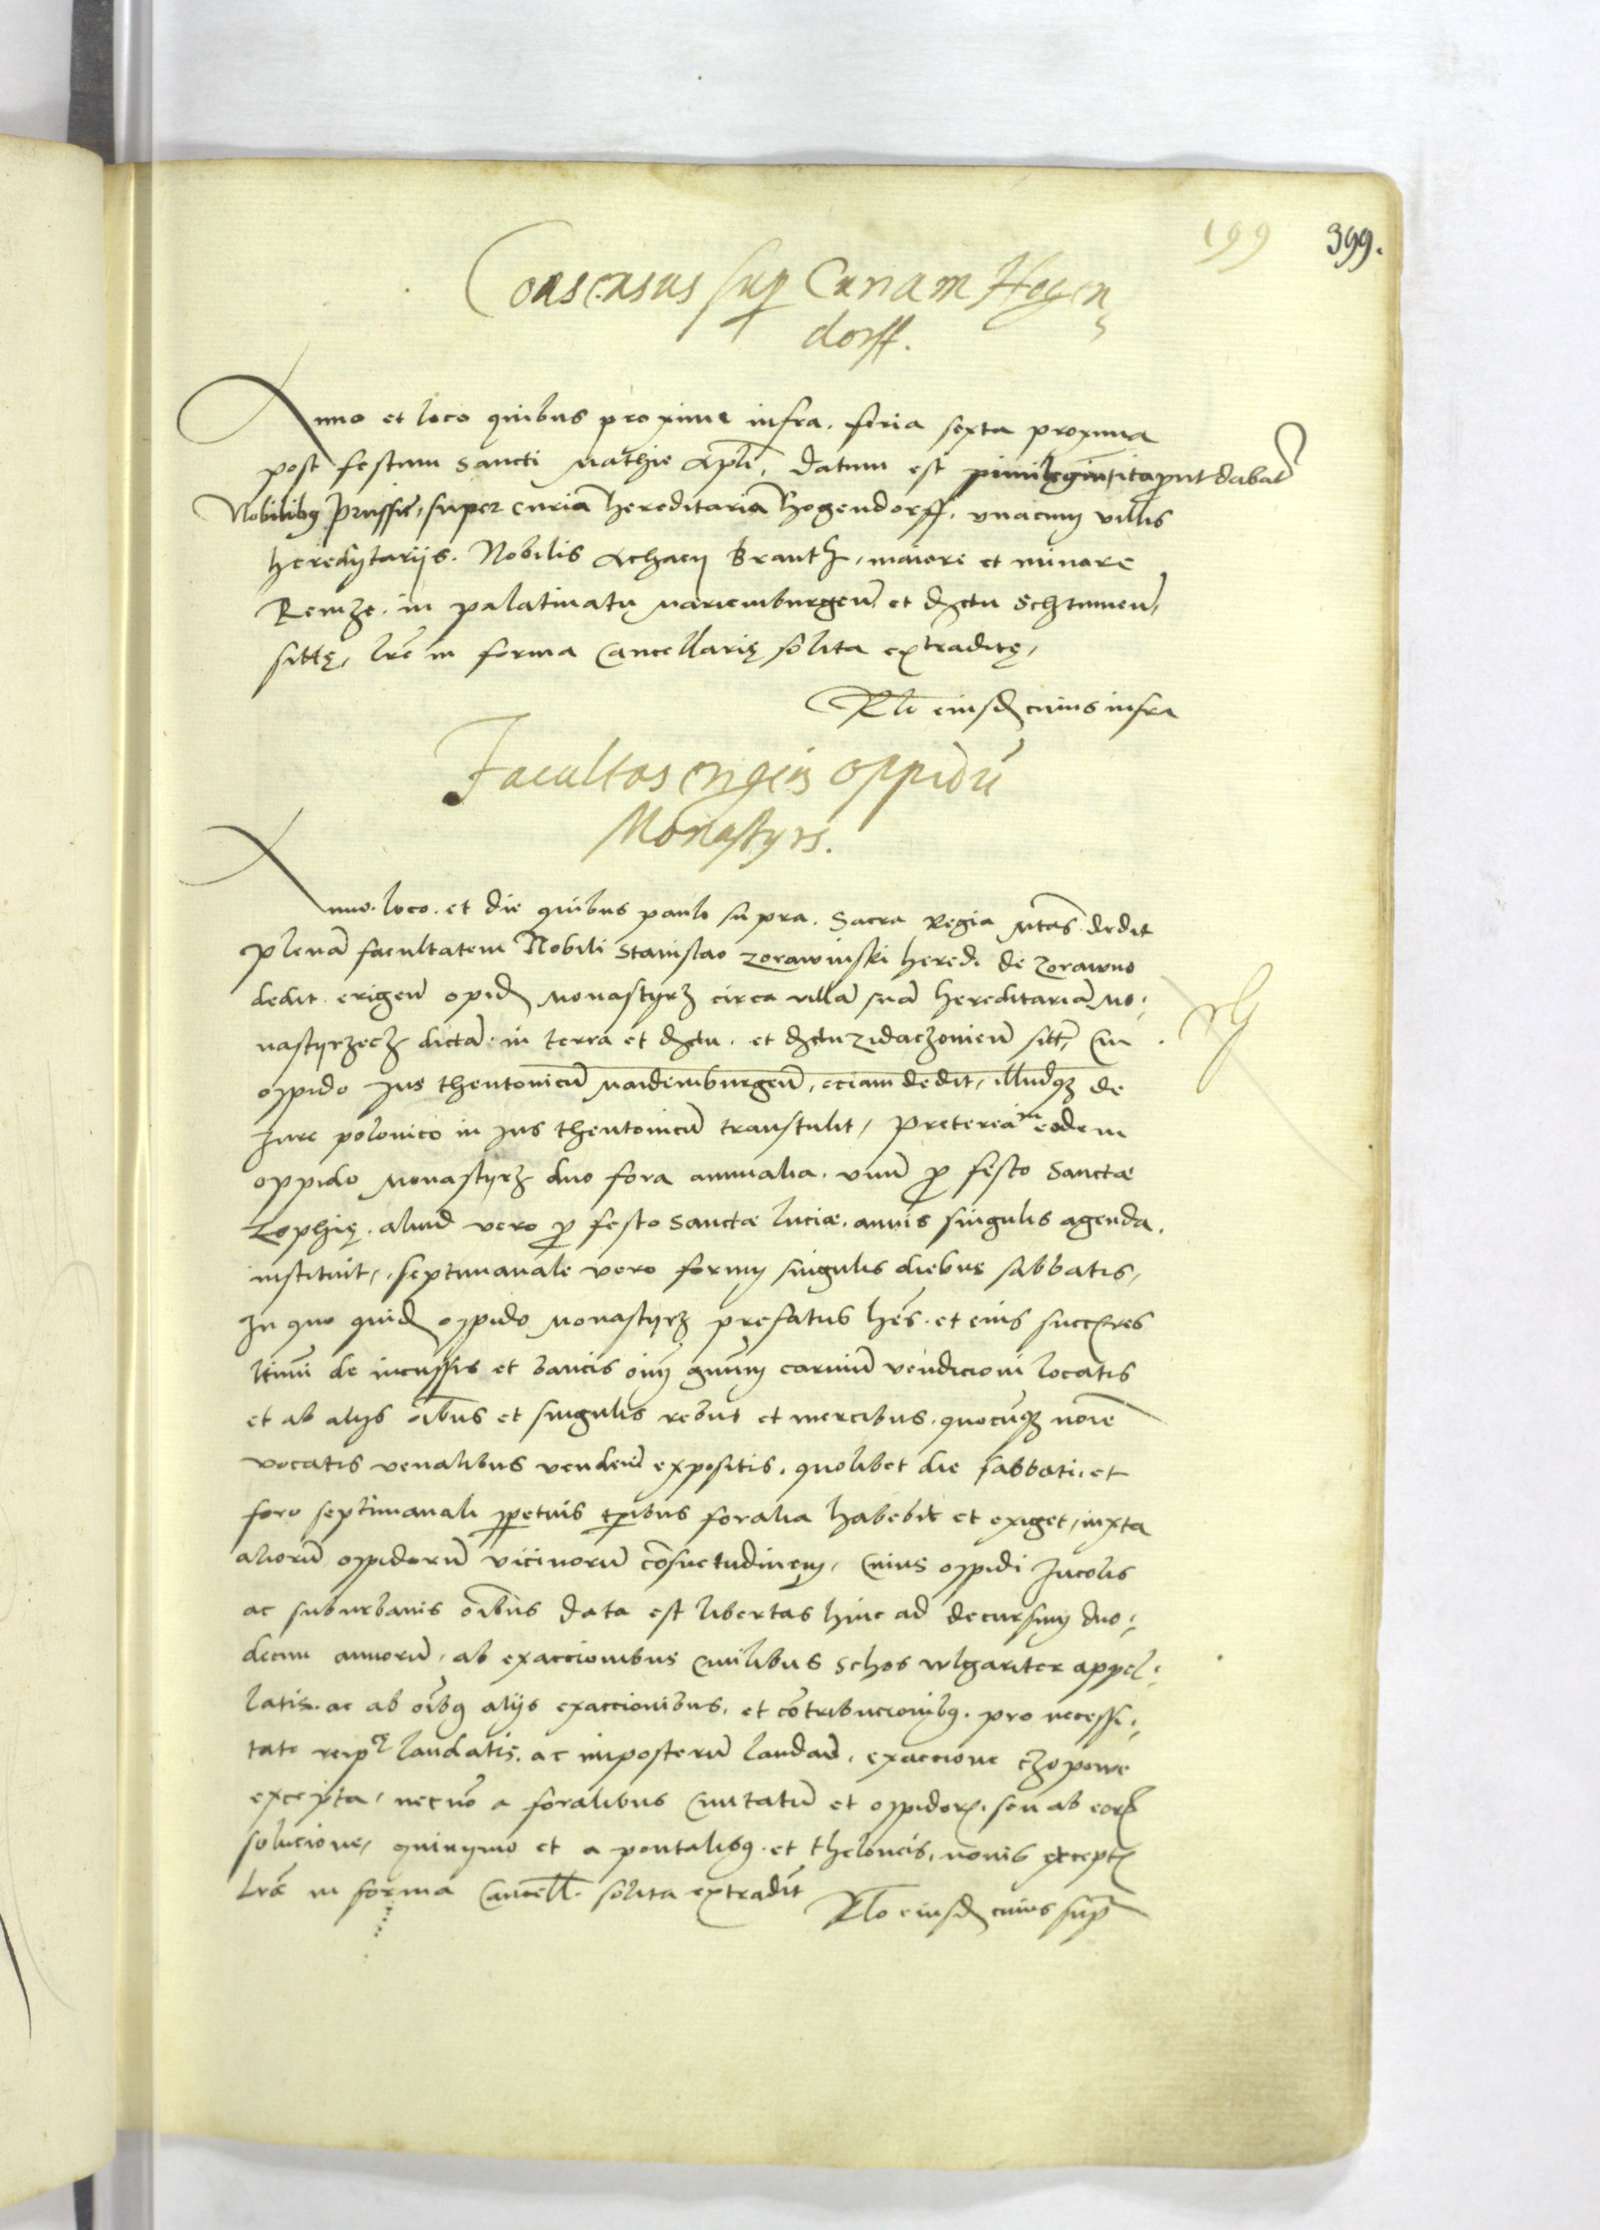 199 399.
Consensus sup Curiam Hogen
dorff.
Anno et loco quibus proxime infra. feria sexta proxima
post festum sancti Mathie Apli, datum est privilegiū, ita prout dabat
Nobilibꝯ Prussie, super curiā hereditariā Hogendorff, vnacum villis
heredytariis. Nobilis Achacy Brant, maiore et minore
Remze. in palatinatu Mariemburgeñ et dſctu Schtumeñ,
sitę, lr̄e in forma Cancellarię solita extraditę,
Rlō eiusd cuius infra
Facultas erigeñ oppidū
Monastyrz.
Anno. loco. et die quibus paulo supra. Sacra Regia Mtas dedit
plenā facultatem Nobili Stanislao Zorawinski heredi de Zorawno
dedit. erigeñ opid Monastyrz circa villā suā hereditariā Mo-
nastyrzecz dictā. in terra et dſctu. et dſctu Zidaczovieñ sitt, Cu
oppido Jus theutonicū Maidemburgeñ, eciam dedit, illudqꝫ de
Jure polonico in Jus theutonicū transtulit, Preterea in eodem
oppido Monastyrz duo fora annualia. vnū p festo Sanctæ
Zophię. aliud vero p festo Sanctæ Luciæ. annis singulis agenda.
instituit, septimanale vero forum singulis diebus sabbatis,
In quo quid oppido Monastyrz prefatus hēs. et eius succeres
ltimi de incussis et bancis oīm gn̄um carniū vendicioni locatis
et ab aliis oībus et singulis rebus et mercibus. quocūqꝫ noīe
vocatis venalibus vendeñ expositis, quolibet die sabbati. et
foro septimanali ppetuis tpibus foralia habebit et exiget, iuxta
aliorū oppidorū vicinorū cōsuetudinem, Cuius oppidi Incolis
ac suburbanis oībus data est libertas hinc ad decursum duo-
decim annorū. ab exaccionibus Civilibus Schos wlgariter appel-
latis. ac ab oībꝯ aliis exaccionibus, et cōtribucionibꝯ. pro necessi-
tate reipce laudatis. ac imposterū laudañ. exaccione czopowe
excepta, necnō a foralibus Civitatū et oppidorꝝ. seu ab eorꝝ
solucione, quinymo et a pontalibꝯ. et theloneis, novis exceptꝭ
Lr̄æ in forma Cancell. solita extradit
Rlō eiusd cuius sup